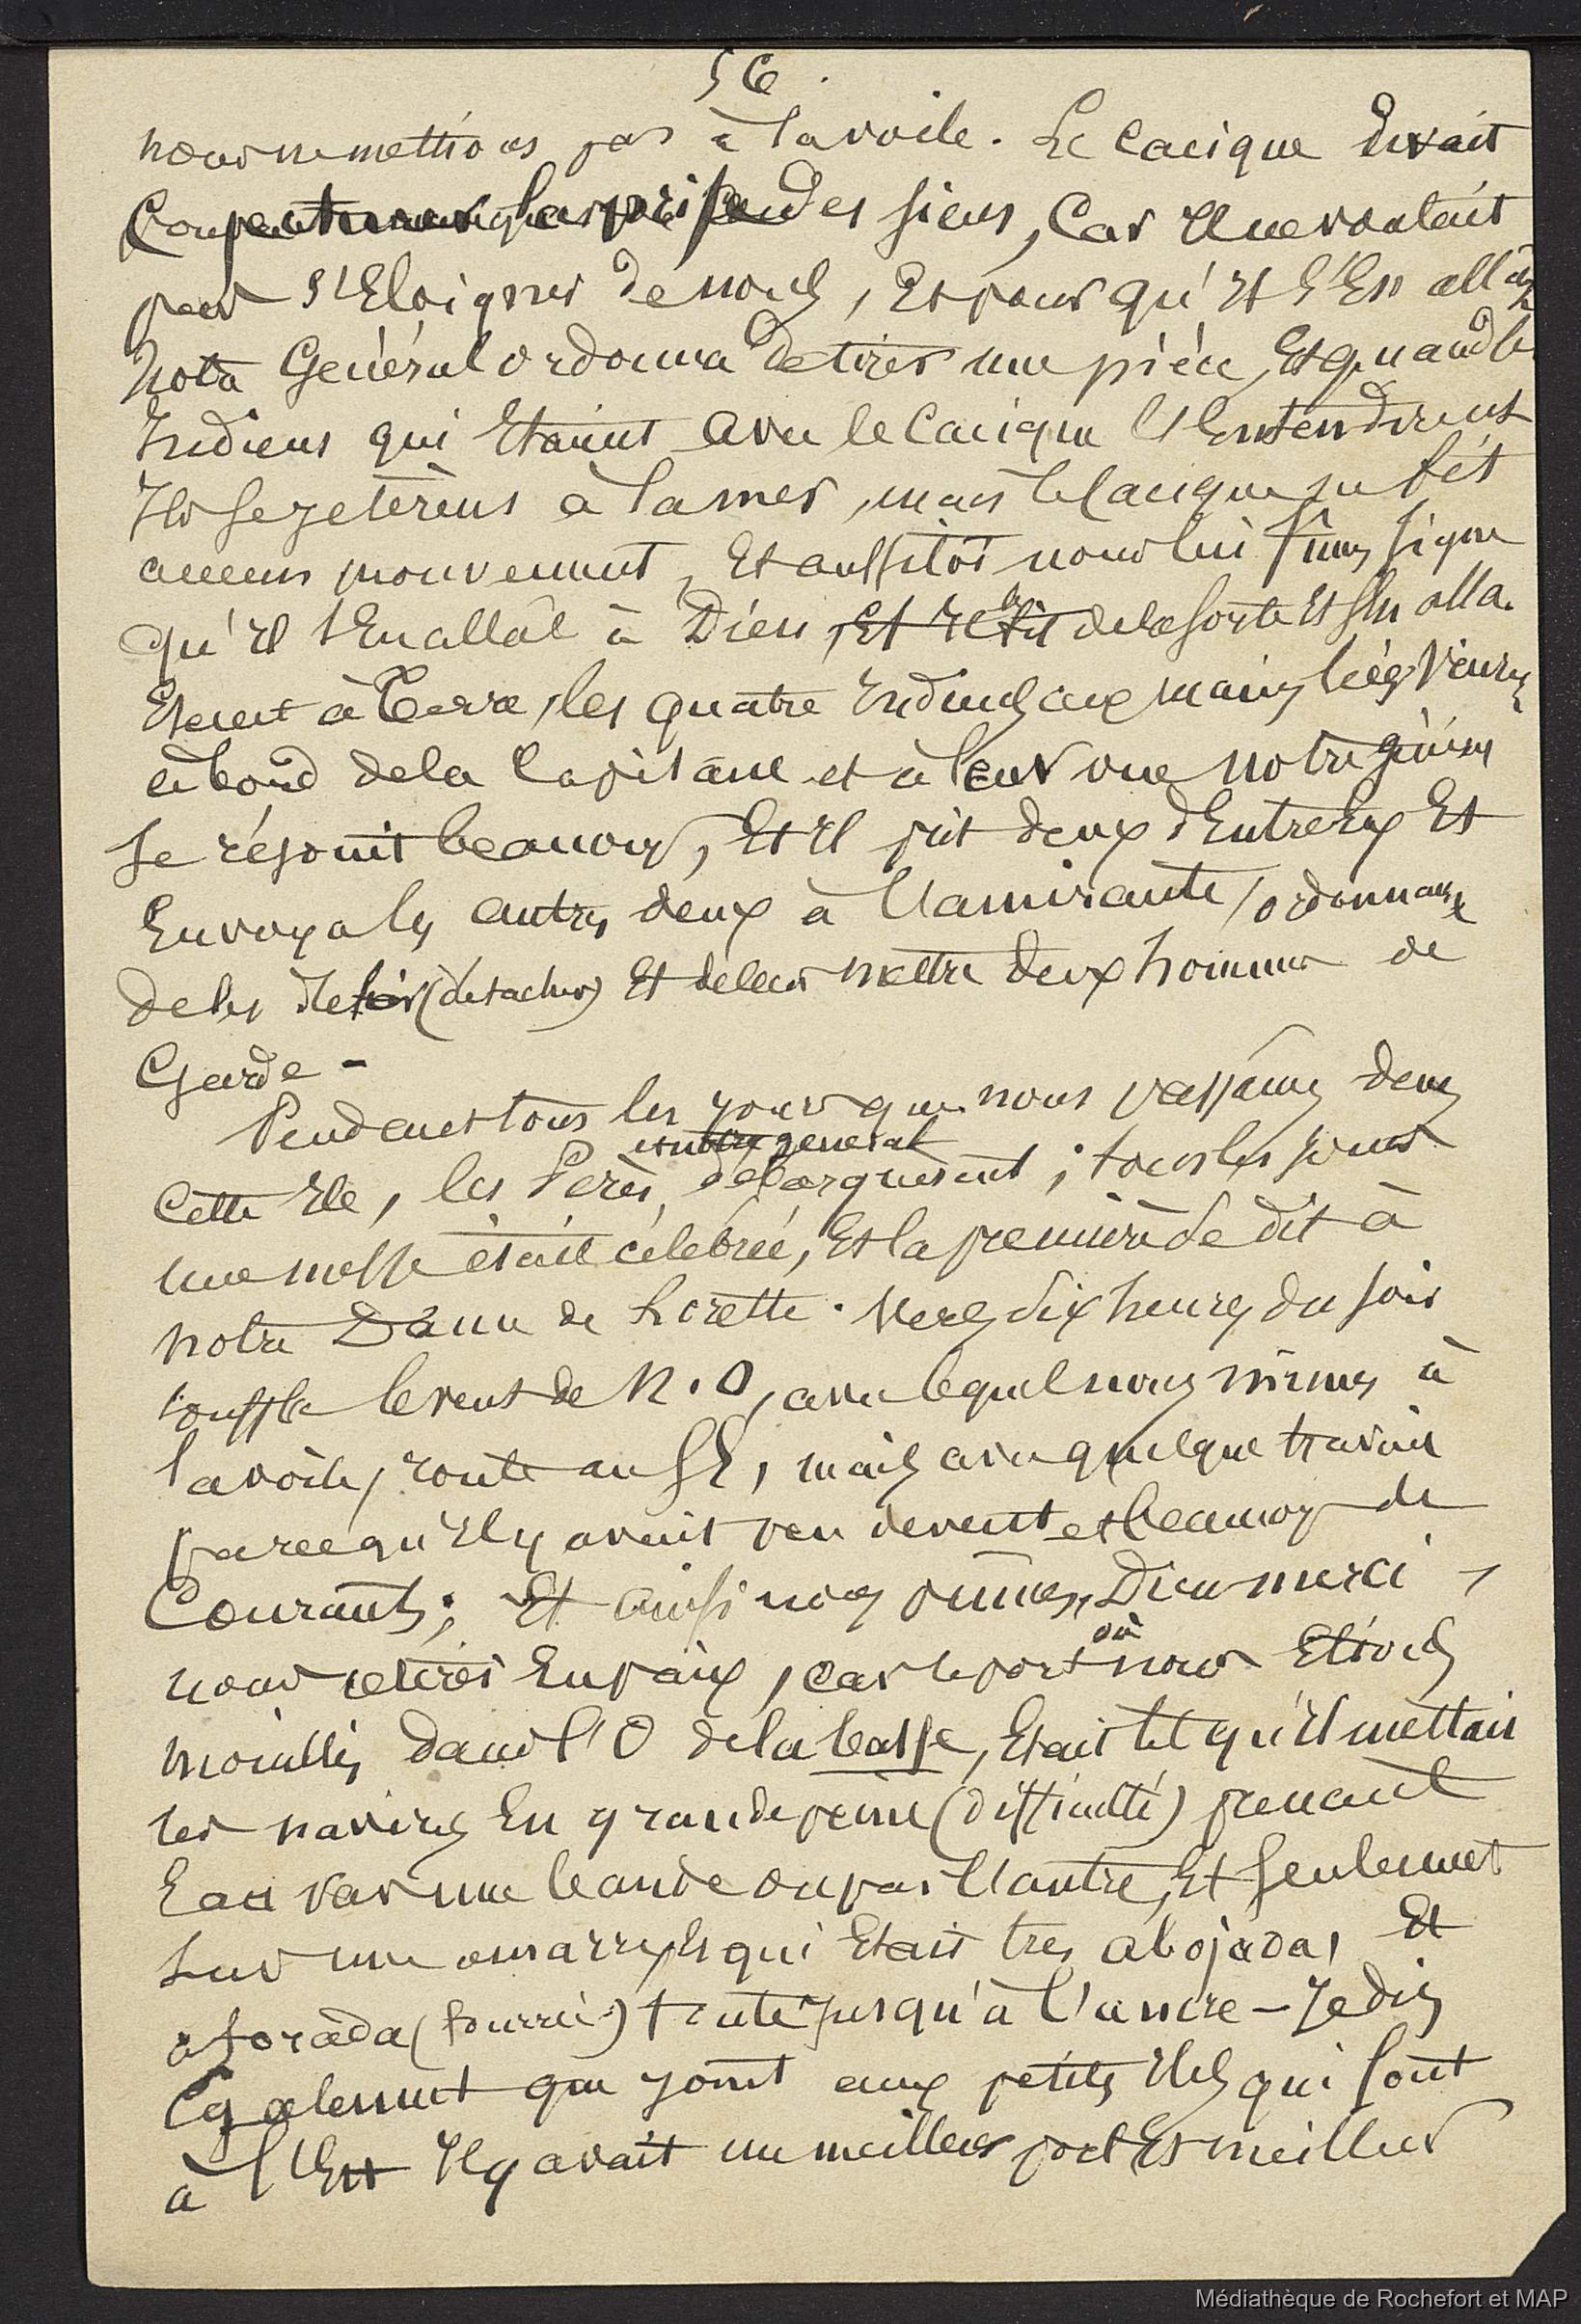 56.
nous ne mettions pas à la voile. Le Cacique devait
des siens, Car Il ne voulait
pas s'Eloigner de nous, Et pour qu'Il s'En allât
Notre Général ordonna de tirer une pièce, Et quand les
Indiens qui Etaient avec le Cacique l'Entendirent
Ils se jetèrent à la mer, mais le Cacique ne fit
aucun mouvement, Et aussitôt nous lui fîmes signe
qu'Il s'En allât à Dieu, Et Il le fit de la sorte Et s'En alla.
Etant à Terre, les quatre Indiens aux mains liées Vinrent
à bord de la Capitane et à leur vue notre général
se réjouit beaucoup, Et Il prit deux d'Entre Eux Et
Envoya les autres deux à l'amirante, ordonnant
de les délier (détacher) Et de leur mettre deux hommes de
Garde -
Pendant tous les jours que nous passâmes dans
et notre général
Cette Ile, les Pères débarquèrent; tous les jours
une messe était célébrée, Et la première se dit à
notre Dame de Lorette. Vers dix heures du soir
souffla le vent de N.O, avec lequel nous mîmes à
la voile, route au SE, mais avec quelque travail
parce qu'Il y avait peu de vent et beaucoup de
Courants; Et ainsi nous pûmes, Dieu merci,
nous retirer En paix, car le port où nous Etions
mouillés dans l'O de la basse, Etait tel qu'Il mettait
les navires En grande peine (difficulté) prenant
Eau par une bande ou par l'autre, Et seulement
sur une amarre, qui Etait très abojada, Et
aforada (fourrée) toute jusqu'à l'ancre - Je dis
Egalement que joint aux petites Iles qui sont
à l'Est Il y avait un meilleur port Et meilleur
Médiathèque de Rochefort et MAP